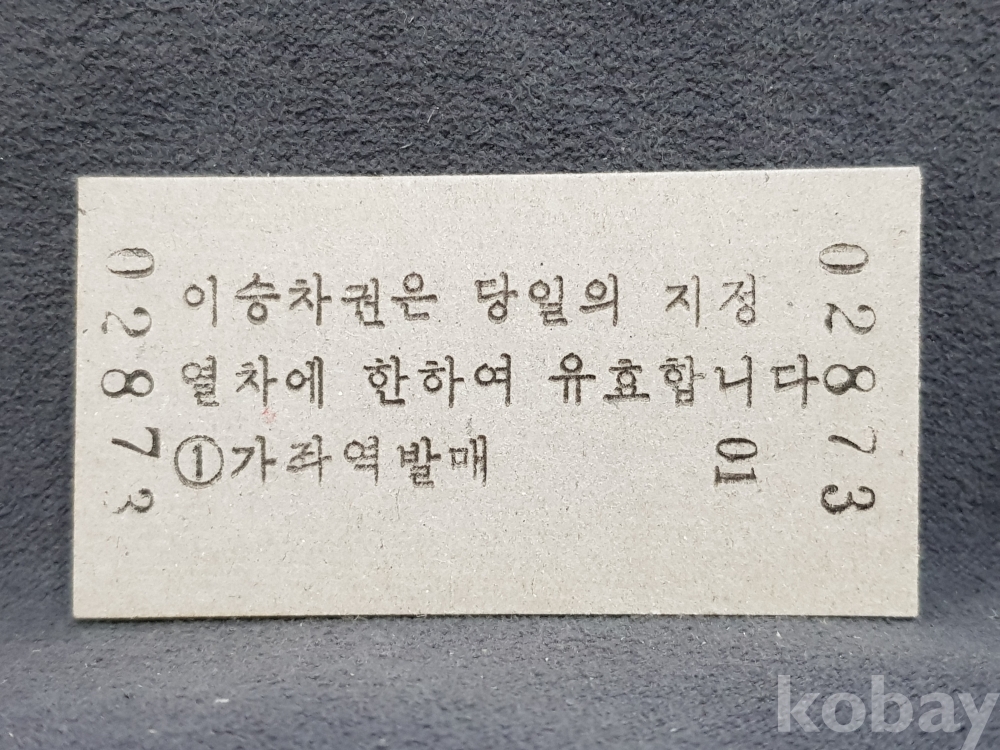 02873
이승차권은 당일의 지정
열차에 한하여 유효합니다
①가좌역발매 01
02873
kobay